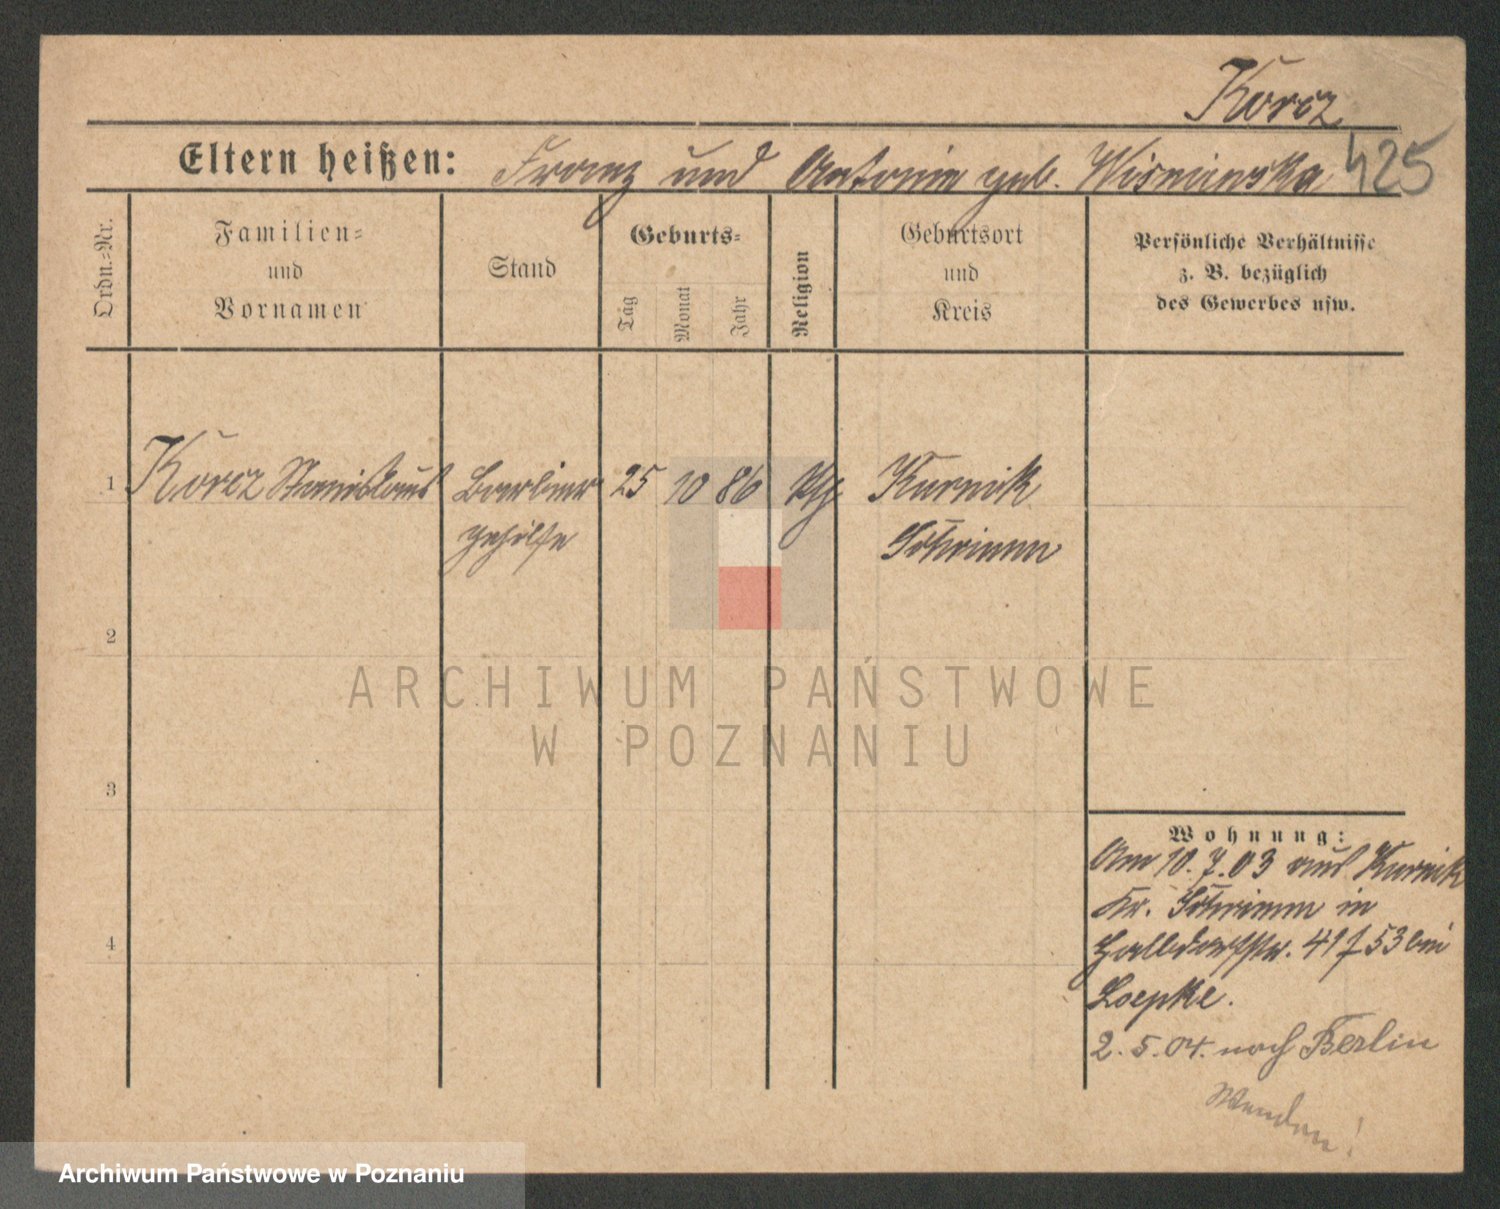 Korcz
Eltern heißen: Franz und Antonie geb. Wisniewska 425
Ordn.-Nr.
Familien-
und
Vornamen
Stand
Geburts-
Tag
Monat
Jahr
Religion
Geburtsort
und
Kreis
Persönliche Verhältnisse
z. B. bezüglich
des Gewerbes usw.
1 Korcz Stanislaus Barbier 25 10 86 Kurnik
gehilfe Schrimm
2
3
4
Wohnung:
Am 10.7.03 aus Kurnik
Kr. Schrimm in
Halbdorfstr. 41 f 53 bei
Loepke.
2.5.04. nach Berlin
Wenden!
ARCHIWUM PAŃSTWOWE
W POZNANIU
Archiwum Państwowe w Poznaniu